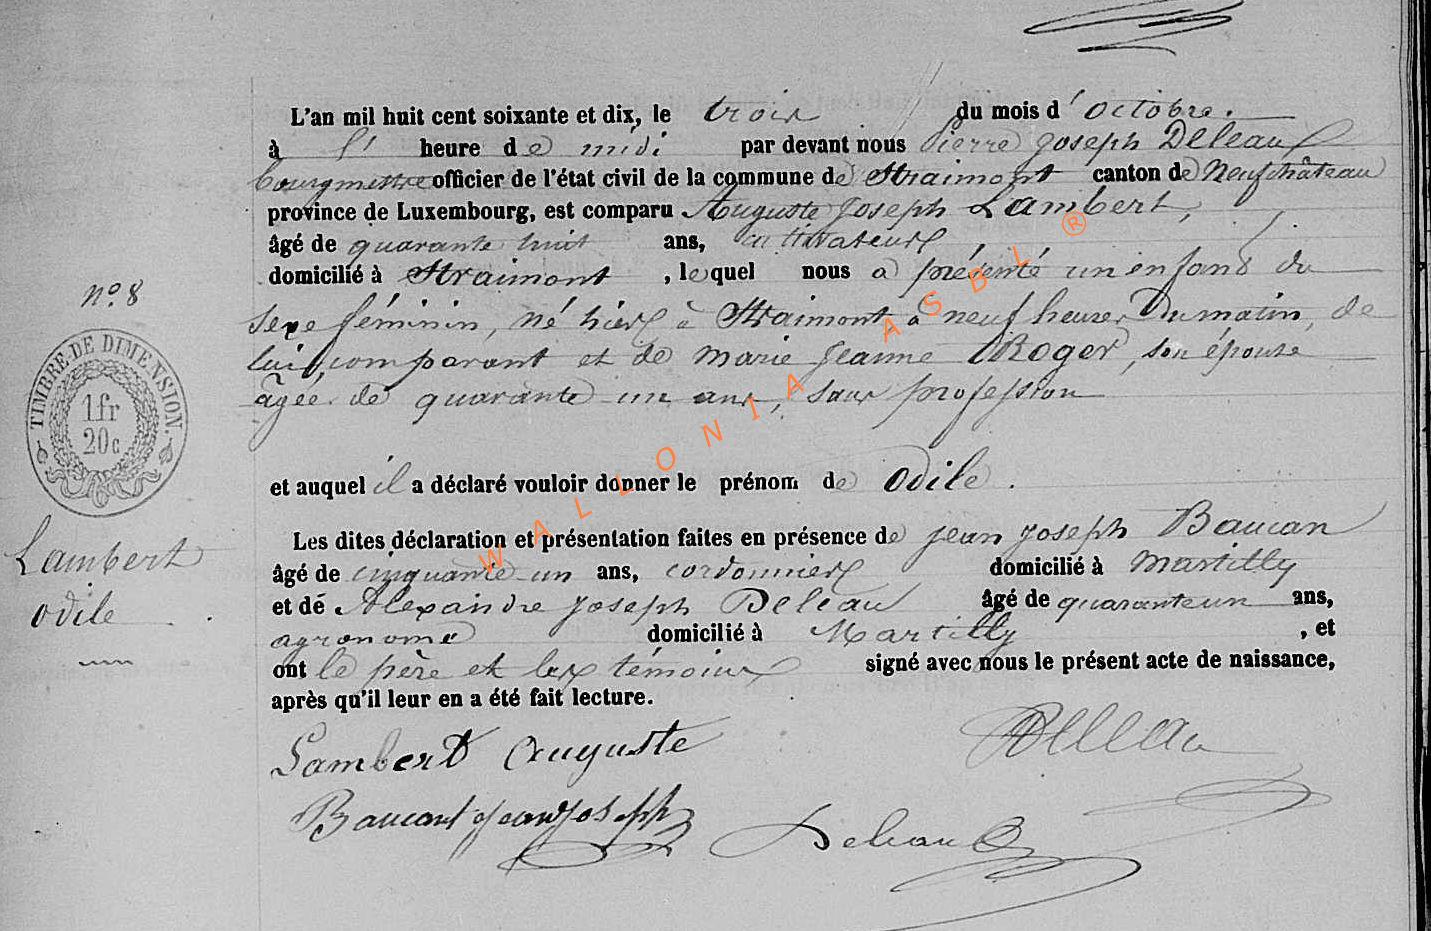 L'an mil huit cent soixante et dix, le trois du mois d'octobre.
à l' heure de midi par devant nous Pierre Joseph Deleau
bourgmestre officier de l'état civil de la commune de Straimont canton de Neufchâteau
province de Luxembourg, est comparu Auguste Joseph Lambert,
âgé de quarante huit ans, cultivateur
domicilié à Straimont, lequel nous a présenté un enfant du
nº 8
sexe féminin, né hier à Straimont à neuf heures du matin, de
lui, comparant et de Marie Jeanne Roger, son épouse
âgée de quarante un ans, sans profession
TIMBRE DE DIMENSION.
1 fr
20 c
et auquel il a déclaré vouloir donner le prénom de Odile.
Les dites déclaration et présentation faites en présence de Jean Joseph Baucan
Lambert
âgé de cinquante un ans, cordonnier domicilié à Martilly
Odile
et de Alexandre Joseph Deleau âgé de quarante un ans,
agronome domicilié à Martilly, et
ont le père et les témoins signé avec nous le présent acte de naissance,
après qu'il leur en a été fait lecture.
Lambert Auguste Deleau
Baucant jean joseph Deleau
WALLONIA ASBL ®